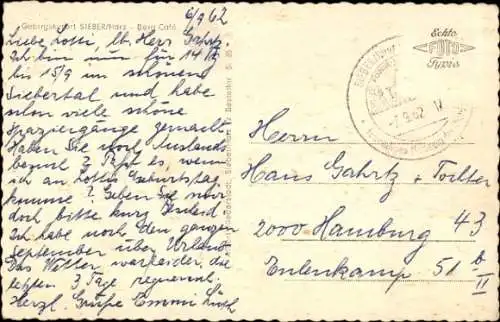 Gebirgskurort SIEBER/Harz - Berg Café
6/9 62
Liebe Lotti, lb. Herr Gahrtz,
Ich bin nun für 14 Tg
bis 15/9 im schönen
Siebertal und habe
schon viele schöne
Spaziergänge gemacht.
Haben Sie noch Auslands
besuch? Paßt es, wenn
ich an Lottis Geburtstag
komme? Geben Sie mir
doch bitte kurz
Ich habe noch den ganzen
September über Urlaub.
Das Wetter war leider die
letzten 3 Tage regnerisch.
Herzl. Grüße Emmi
Echte
FOTO
9.62
Herrn
Hans Gahrtz + Tochter
2000 Hamburg 43
Eulenkamp 51 b
II